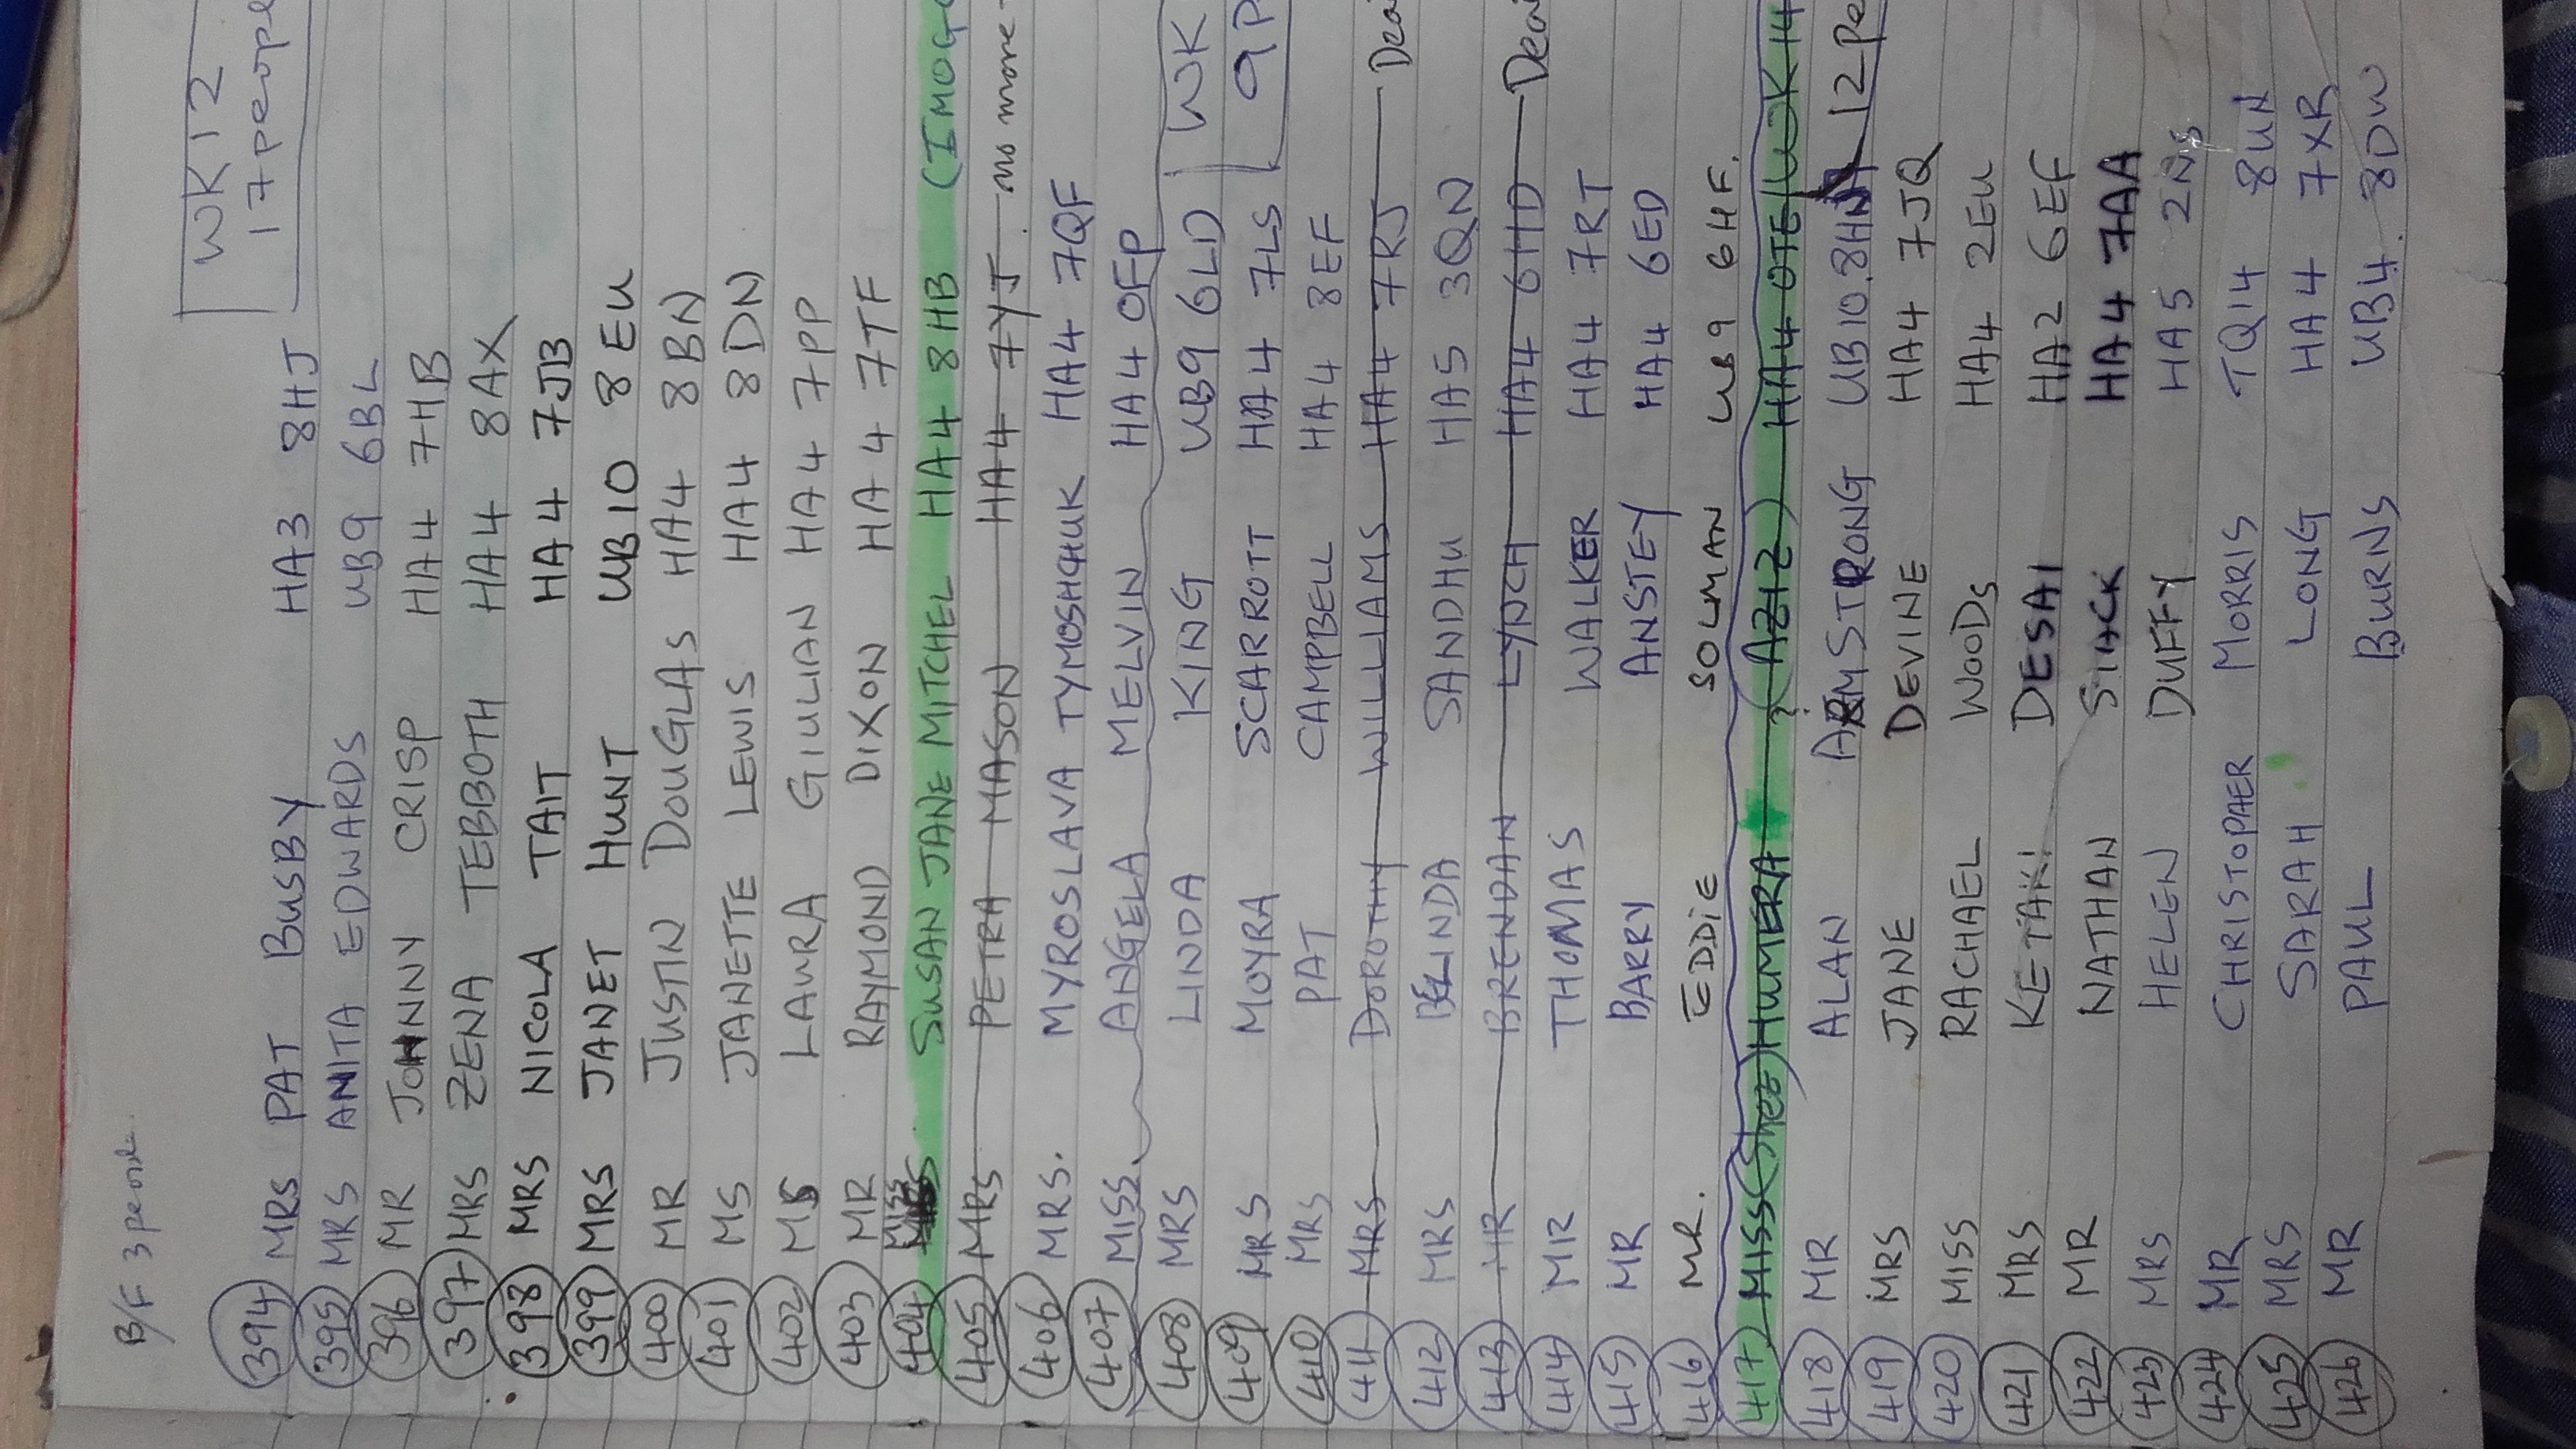 B/F 3 people
WK 12
17 people
394 MRS PAT BUSBY HA3 8HJ
395 MRS ANITA EDWARDS UB9 6BL
396 MR JOHNNY CRISP HA4 7HB
397 MRS ZENA TEBBOTH HA4 8AX
398 MRS NICOLA TAIT HA4 7JB
399 MRS JANET HUNT UB10 8EU
400 MR JUSTIN DOUGLAS HA4 8BN
401 MS JANETTE LEWIS HA4 8DN
402 MS LAURA GIULIAN HA4 7PP
403 MR RAYMOND DIXON HA4 7TF
404 MISS SUSAN JANE MITCHEL HA4 8HB (IMOG
405 MRS PETRA MASON HA4 7YJ. no more
406 MRS. MYROSLAVA TYMOSHCHUK HA4 7QF
407 MISS. ANGELA MELVIN HA4 0FP
408 MRS LINDA KING UB9 6LD WK
409 MRS MOYRA SCARROTT HA4 7LS 9P
410 MRS PAT CAMPBELL HA4 8EF
411 MRS DOROTHY WILLIAMS HA4 7RJ Dea
412 MRS BELINDA SANDHU HA5 3QN
413 MR BRENDAN LYNCH HA4 6HD Dea
414 MR THOMAS WALKER HA4 7RT
415 MR BARRY ANSTEY HA4 6ED
416 MR. EDDiE SOLMAN UB9 6HF.
417 MISS (Shez) HUMERA ? (AZIZ) HA4 0TE/WK 14
418 MR ALAN ARMSTRONG UB10 8HN 12 Pe
419 MRS JANE DEVINE HA4 7JQ
420 MISS RACHAEL WOODS HA4 2EU
421 MRS KETAKI DESAI HA2 6EF
422 MR NATHAN STACK HA4 7AA
423 MRS HELEN DUFFY HA5 2NS
424 MR CHRISTOPAER MORRIS TQ14 8UN
425 MRS SARAH LONG HA4 7XR
426 MR PAUL BURNS UB4. 8DW